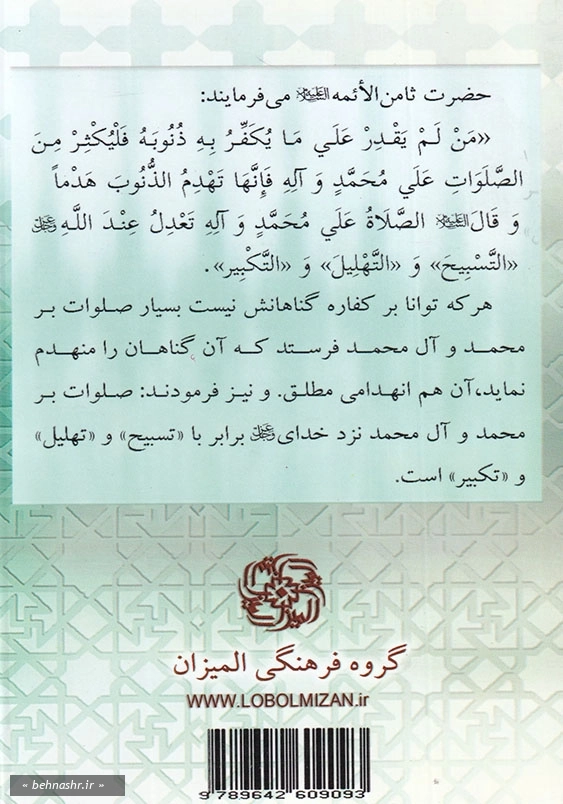 حضرت ثامن‌الأئمه علیه‌السلام می‌فرمایند:
«مَنْ لَمْ يَقْدِرْ عَلَي مَا يُكَفِّرُ بِهِ ذُنُوبَهُ فَلْيُكْثِرْ مِنَ
الصَّلَوَاتِ عَلَي مُحَمَّدٍ وَ آلِهِ فَإِنَّهَا تَهْدِمُ الذُّنُوبَ هَدْماً
وَ قَالَ علیه‌السلام الصَّلَاةُ عَلَي مُحَمَّدٍ وَ آلِهِ تَعْدِلُ عِنْدَ اللَّهِ عزوجل
«التَّسْبِيحَ» وَ «التَّهْلِيلَ» وَ «التَّكْبِير».
هرکه توانا بر کفاره گناهانش نیست بسیار صلوات بر
محمد و آل محمد فرستد که آن گناهان را منهدم
نماید،آن هم انهدامی مطلق. و نیز فرمودند: صلوات بر
محمد و آل محمد نزد خدای عزوجل برابر با «تسبیح» و «تهلیل»
و «تکبیر» است.
گروه فرهنگی المیزان
WWW.LOBOLMIZAN.ir
9 789642 609093
« behnashr.ir »